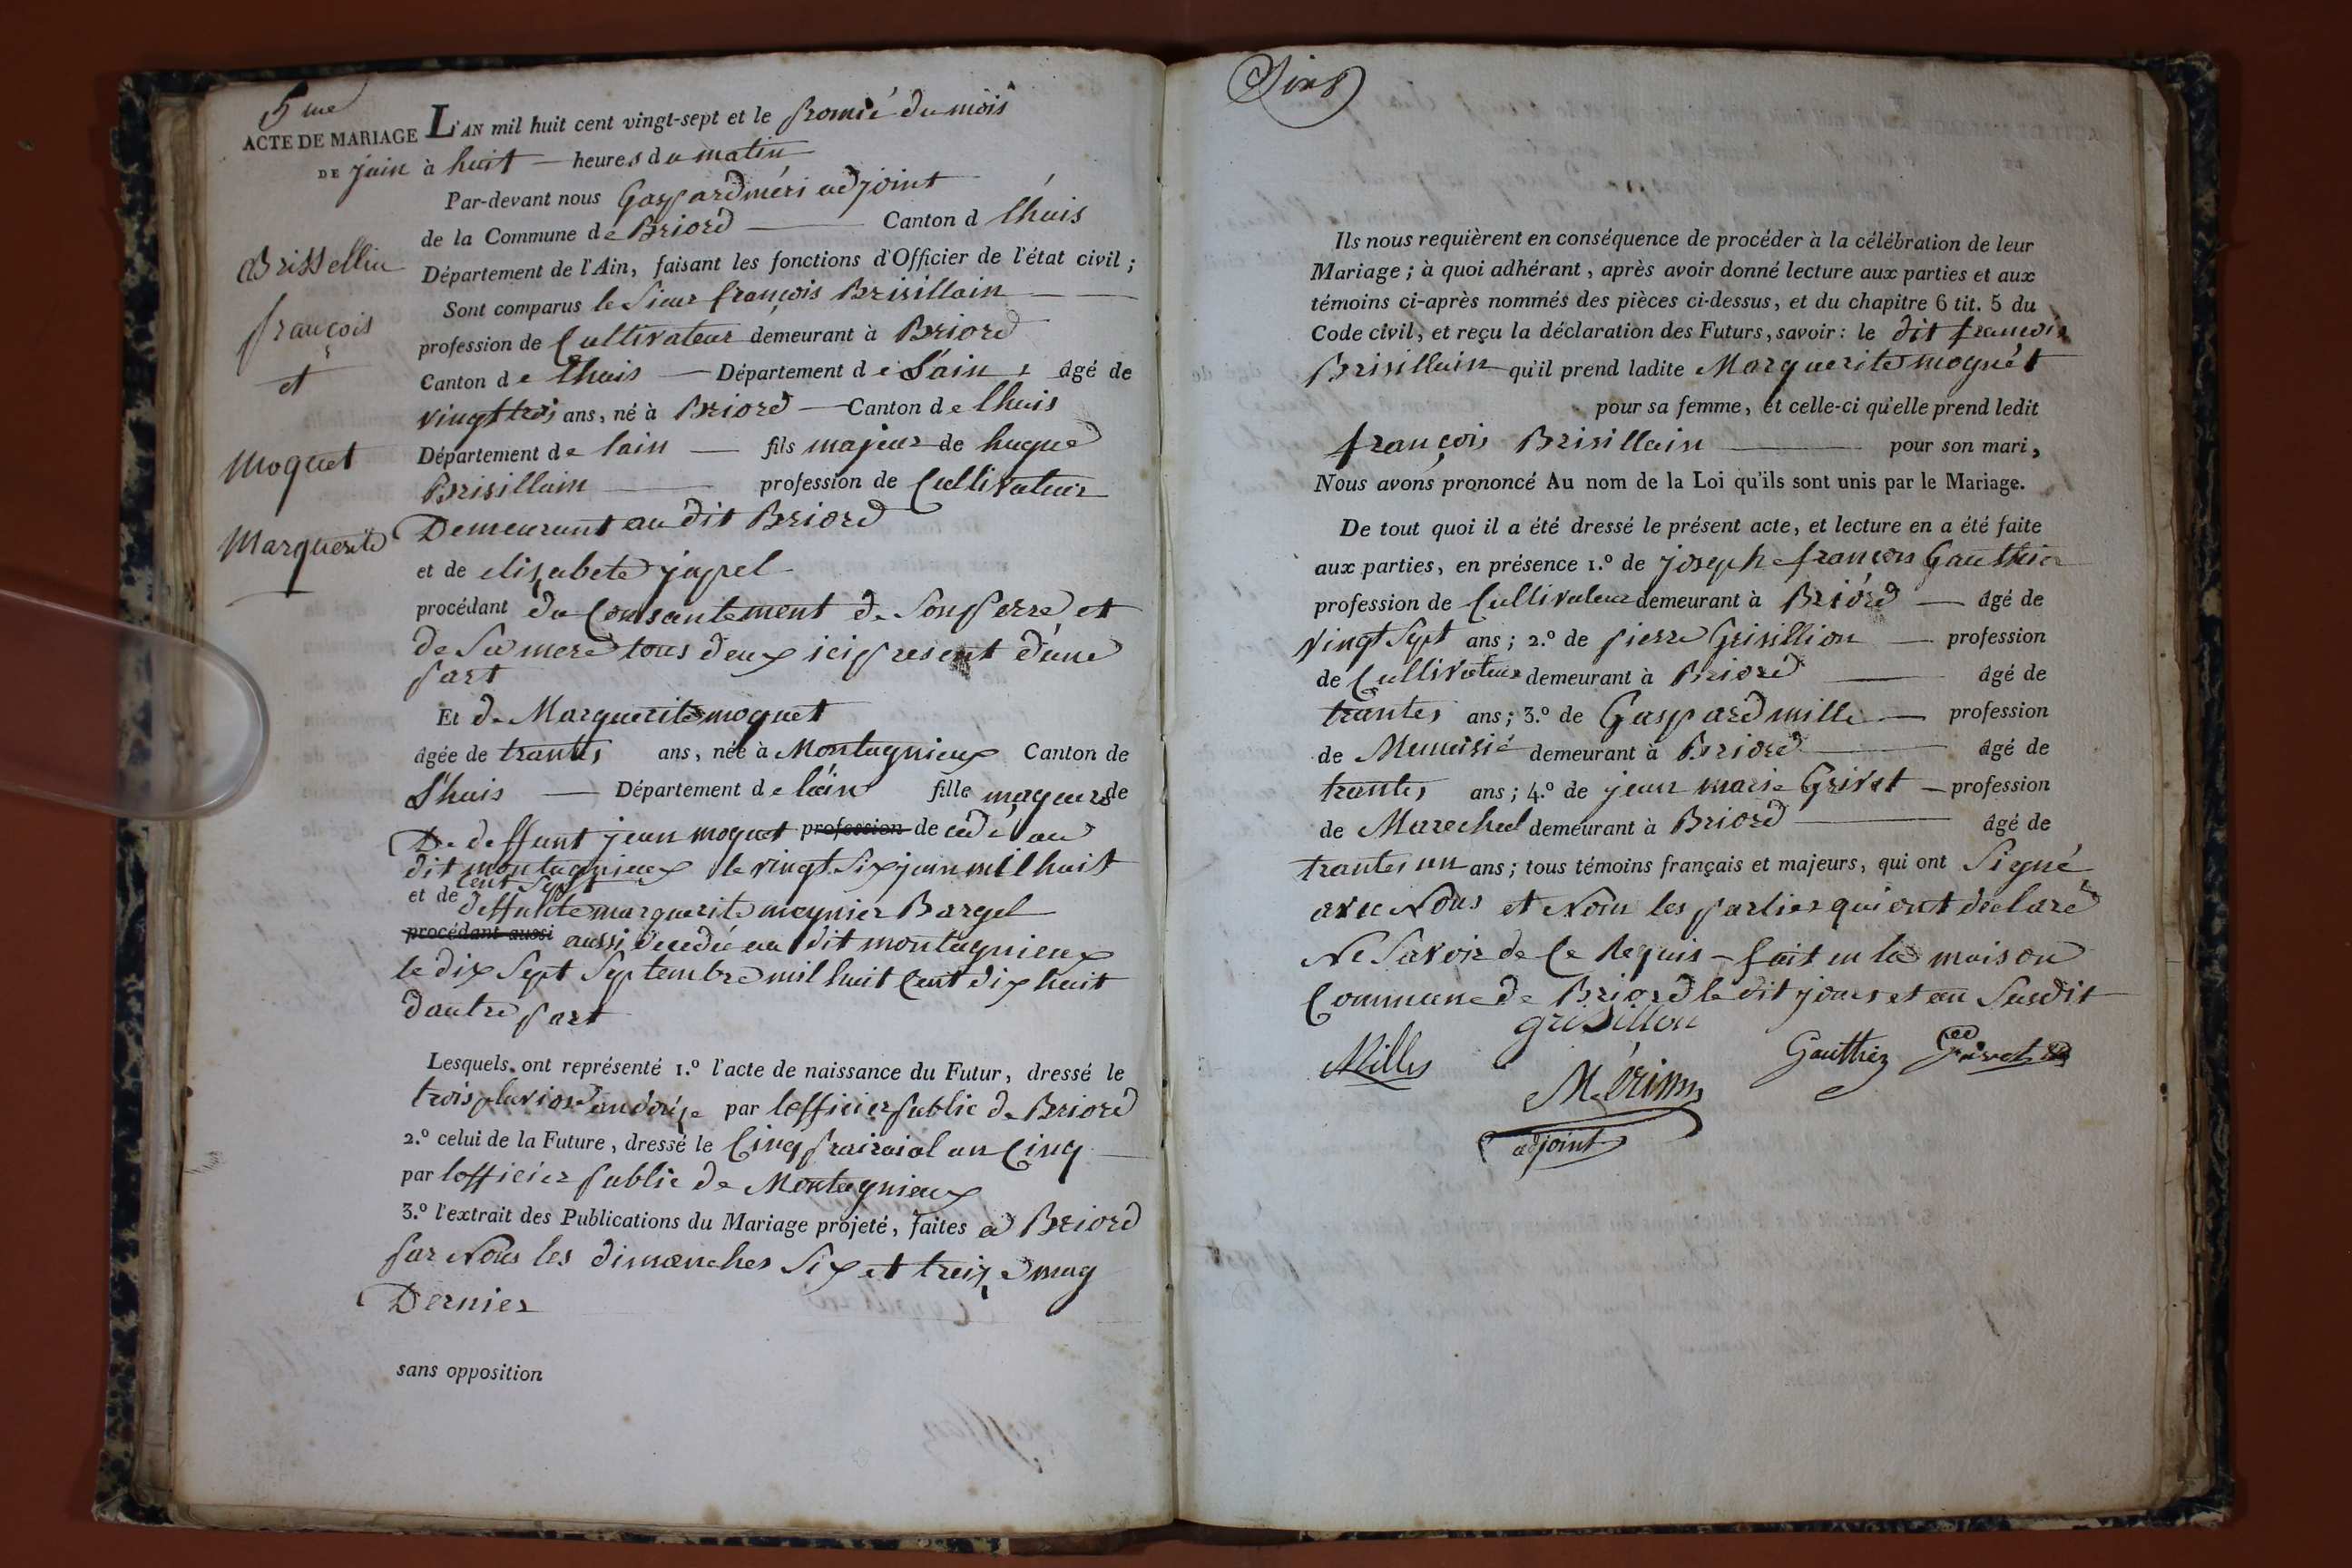 5me
ACTE DE MARIAGE L'AN mil huit cent vingt-sept et le promié du mois
DE juin à huit — heures du matin
Par-devant nous Gaspard méri adjoint
de la Commune de Briord — Canton d lhuis
Département de l'Ain, faisant les fonctions d'Officier de l'état civil ;
Sont comparus le Sieur françois Brisillain
profession de Cultivateur demeurant à Briord
Canton de lhuis — Département de L'ain, âgé de
vingt trois ans, né à Briord — Canton de lhuis
Département de lain — fils majeur de hugue
Brisillain — profession de Cultivateur
Demeurant au dit Briord
et de elisabete japel
procédant du Consantement de Son perre et
de Sa mere tous deux ici present d'une
part
Et de Marguerite moquet
âgée de trantes ans, née à Montagnieux Canton de
Lhuis — Département de l'ain fille mageure de
De deffunt jean moquet profession de cédé au
dit montagnieux le vingt Six juin mil huit
cent Sept
et de deffunte marguerite meynier Bargel
procédant aussi aussi décedée au dit montagnieux
le dix Sept Septembre mil huit Cent dix huit
dautre part
Lesquels ont représenté 1.º l'acte de naissance du Futur, dressé le
trois pluviose an douze par lofficier public de Briord
2.º celui de la Future, dressé le Cinq prairaial an Cinq
par lofficier public de Montagnieux
3.º l'extrait des Publications du Mariage projeté, faites à Briord
par Nous les dimanches Six et treize may
Dernier
sans opposition
Brissellin
françois
et
Moquet
Marguerite
Ils nous requièrent en conséquence de procéder à la célébration de leur
Mariage ; à quoi adhérant, après avoir donné lecture aux parties et aux
témoins ci-après nommés des pièces ci-dessus, et du chapitre 6 tit. 5 du
Code civil, et reçu la déclaration des Futurs, savoir : le dit françois
Brisillain qu'il prend ladite Marguerite moquet
pour sa femme, et celle-ci qu'elle prend ledit
françois Brisillain — pour son mari,
Nous avons prononcé Au nom de la Loi qu'ils sont unis par le Mariage.
De tout quoi il a été dressé le présent acte, et lecture en a été faite
aux parties, en présence 1.º de joseph françois Gauthier
profession de Cultivateur demeurant à Briord — âgé de
vingt Sept ans ; 2.º de pierre Grisillion — profession
de Cultivateur demeurant à Briord — âgé de
trantes ans ; 3.º de Gaspard mille — profession
de Menuisié demeurant à Briord — âgé de
trantes ans ; 4.º de jean marie Grivet — profession
de Marechal demeurant à Briord — âgé de
trantes un ans ; tous témoins français et majeurs, qui ont Signé
avec Nous et Nom les parties qui ont déclaré
Ne Savoir de Ce Requis — fait en la maison
Commune de Briord le dit jours et an Susdit
grisillon
Milles
Gauthier
Grivet
Mérimy
adjoint